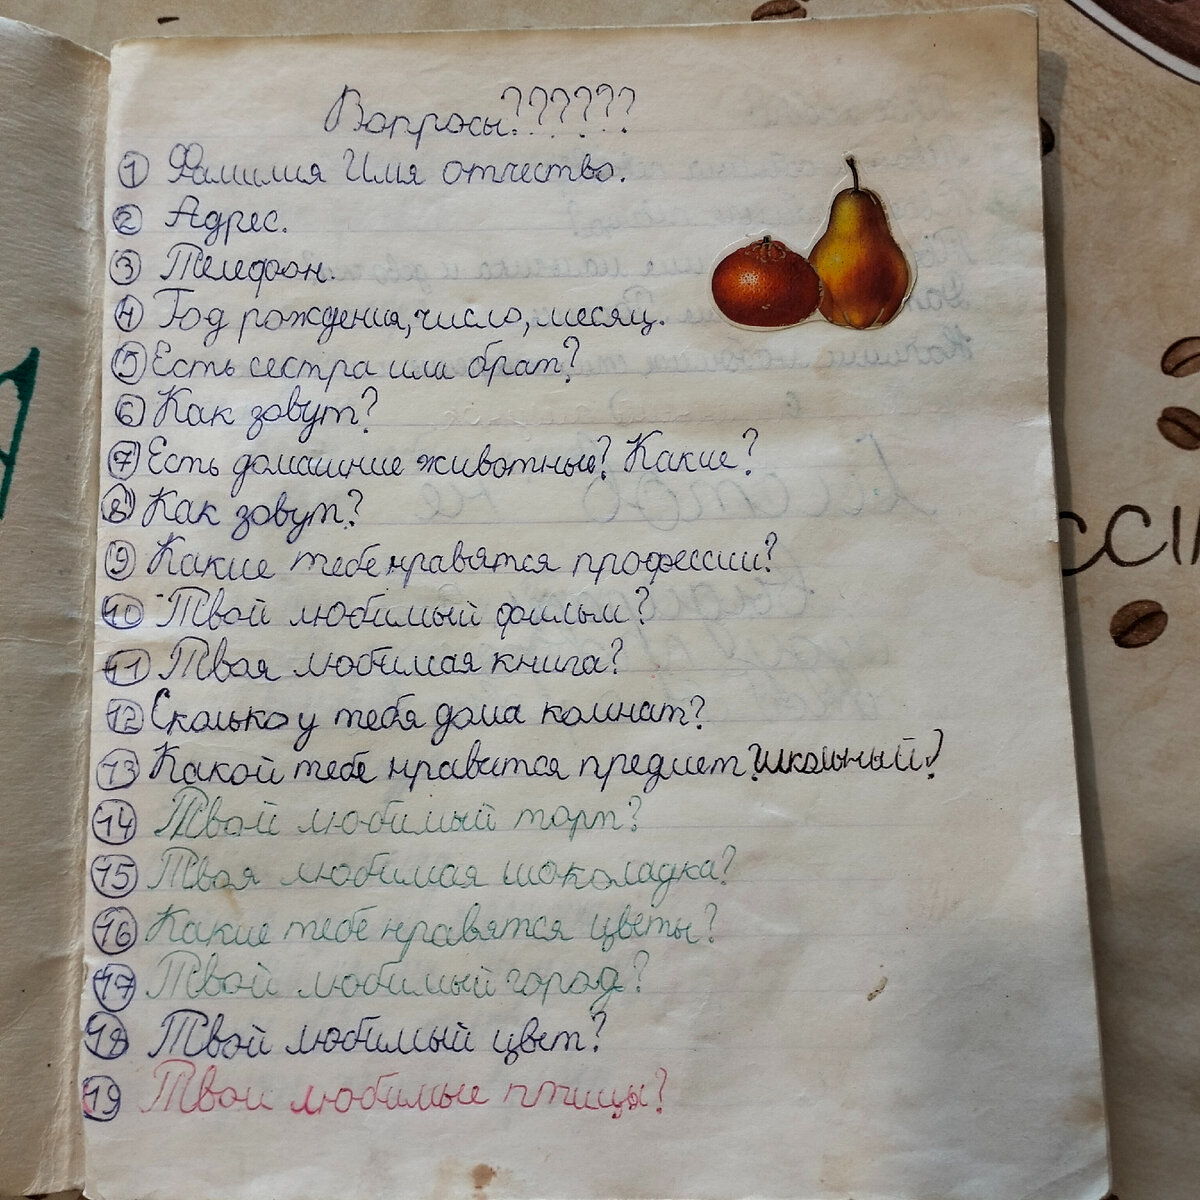 Вопросы??????
1 Фамилия Имя отчество.
2 Адрес.
3 Телефон.
4 Год рождения, число, месяц.
5 Есть сестра или брат?
6 Как зовут?
7 Есть домашние животные? Какие?
8 Как зовут?
9 Какие тебе нравятся профессии?
10 Твой любимый фильм?
11 Твоя любимая книга?
12 Сколько у тебя дома комнат?
13 Какой тебе нравится предмет? школьный?
14 Твой любимый торт?
15 Твоя любимая шоколадка?
16 Какие тебе нравятся цветы?
17 Твой любимый город?
18 Твой любимый цвет?
19 Твои любимые птицы?